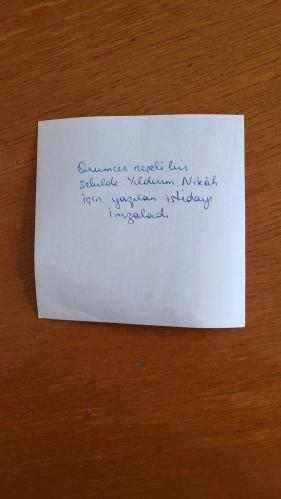 neşeli bir
şekilde Yıldırım Nikâh
için yazılan istidayı
imzaladı